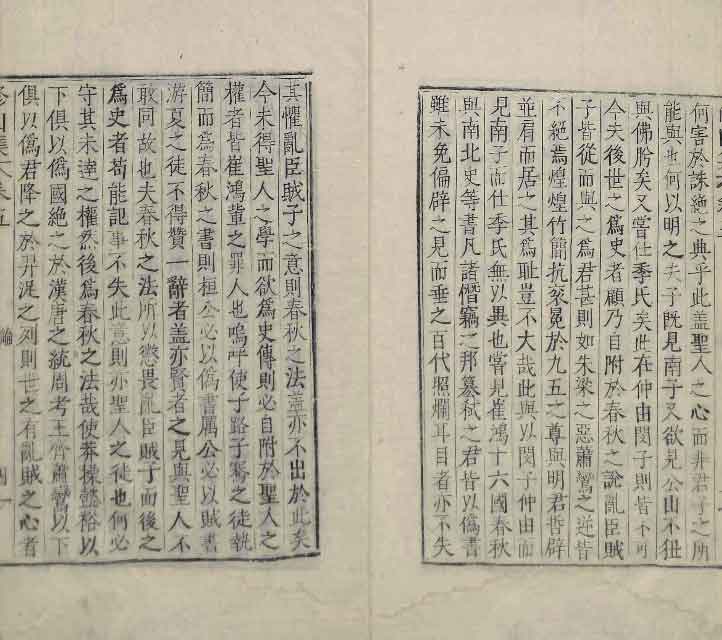 何害於誅絶之典乎此盖聖人之心而非君子之所
能與也何以明之夫子旣見南子又欲見公山不狃
與佛肹矣又嘗仕季氏矣此在仲由閔子則皆不可
今夫後世之爲史者顧乃自附於春秋之論亂臣賊
子皆從而與之爲君甚則如朱梁之惡蕭鸞之逆皆
不絶焉煌煌竹簡抗衮冕於九五之尊與明君哲辟
並肩而居之其爲耻豈不大哉此與以閔子仲由而
見南子而仕季氏無以異也嘗見崔鴻十六國春秋
與南北史等書凡諸僭竊之邦簒弑之君皆以僞書
雖未免偏辟之見而垂之百代照爛耳目者亦不失
其懼亂臣賊子之意則春秋之法盖亦不出於此矣
今未得聖人之學而欲爲史傳則必自附於聖人之
權者皆崔鴻軰之罪人也嗚呼使子路子騫之徒執
簡而爲春秋之書則桓公必以僞書厲公必以賊書
游夏之徒不得贊一辭者盖亦賢者之見與聖人不
敢同故也夫春秋之法所以懲畏亂臣賊子而後之
爲史者苟能記事不失此意則亦聖人之徒也何必
守其未達之權然後爲春秋之法哉使莽操懿裕以
下俱以僞國絶之於漢唐之統周考王齊蕭鸞以下
俱以僞君降之於羿浞之列則世之有亂賊之心者
論